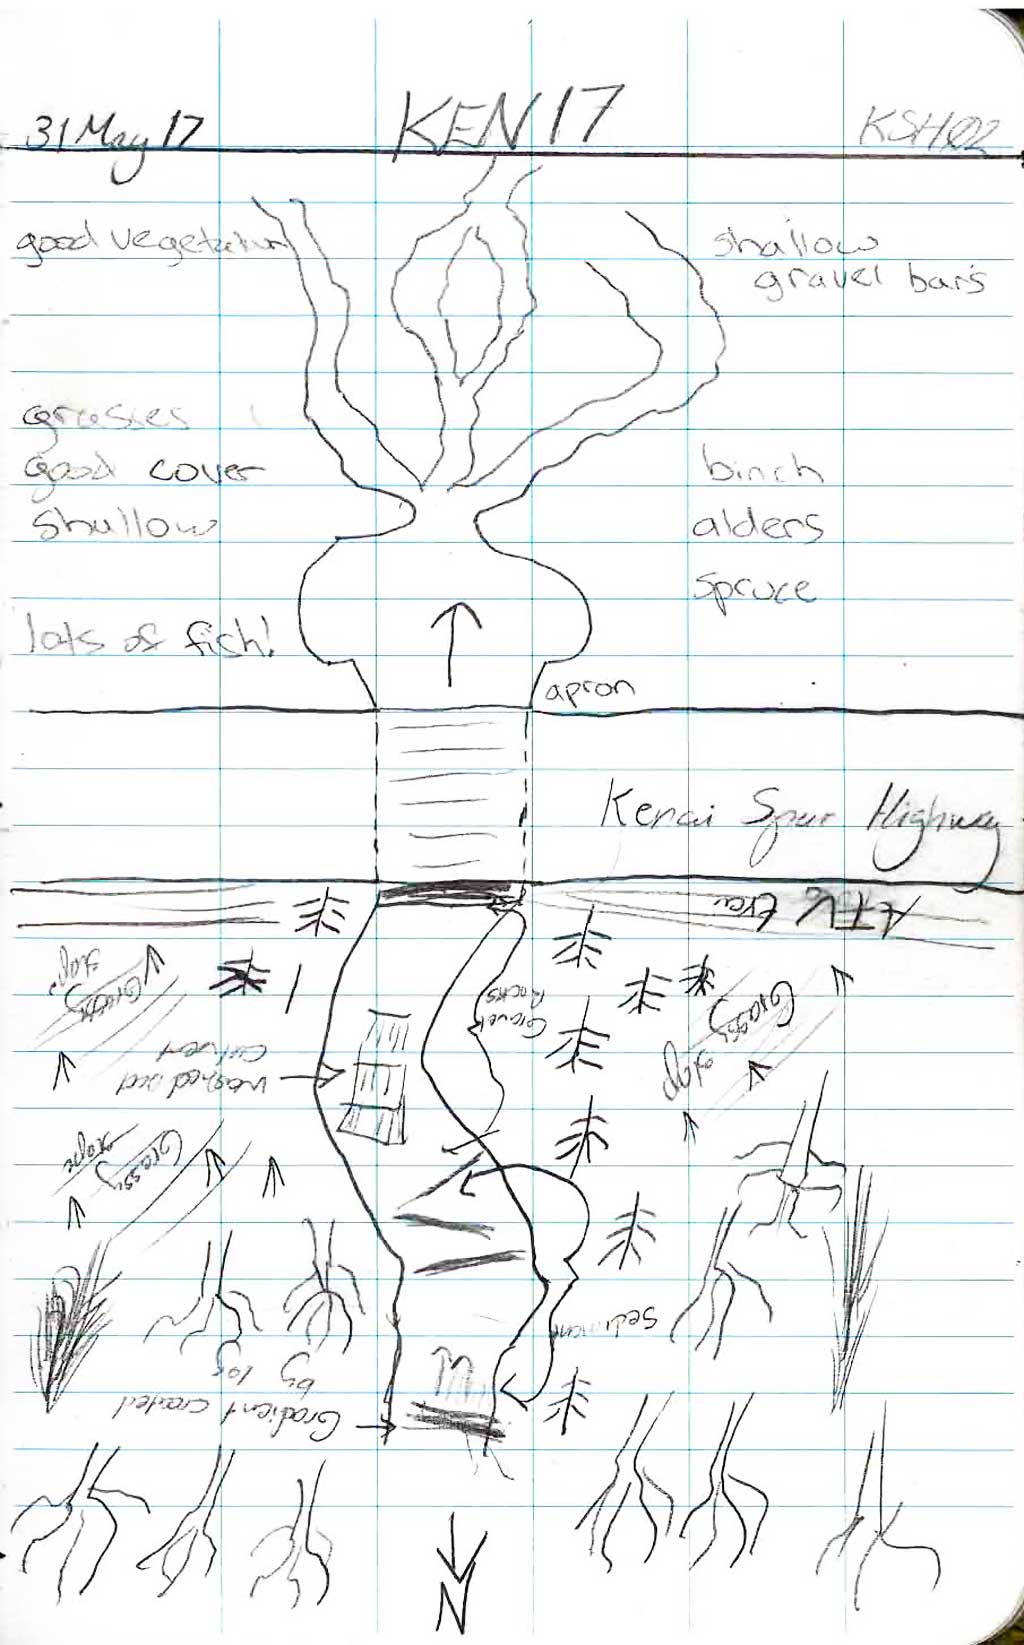 31 May 17
KEN17
KSHØ2
good vegetation
shallow
gravel bars
grasses
good cover
shallow
birch
alders
spruce
lots of fish!
apron
Kenai Spur Highway
ATV trai
Grassy
slope
Gravel
Rocks
Grassy
slope
washed out
culvert
Grassy
slope
Sediment
Gradient created
by log
N